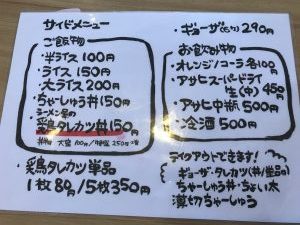 サイドメニュー
ご飯物
・半ライス100円
・ライス 150円
・大ライス 200円
・ちゃーしゅう丼150円
ラーメン屋の
・鶏タレカツ丼150円
・鶏タレカツ単品
1枚80円/5枚350円
・ギョーザ(5ヶ)290円
お飲み物
・オレンジ/コーラ 各100円
・アサヒスーパードライ
生(中)450円
・アサヒ中瓶500円
・冷酒 500円
テイクアウトできます!
ギョーザ・タカツ(丼/単品)
ちゃーしゅう丼・ちょい太
薄切ちゃーしゅう